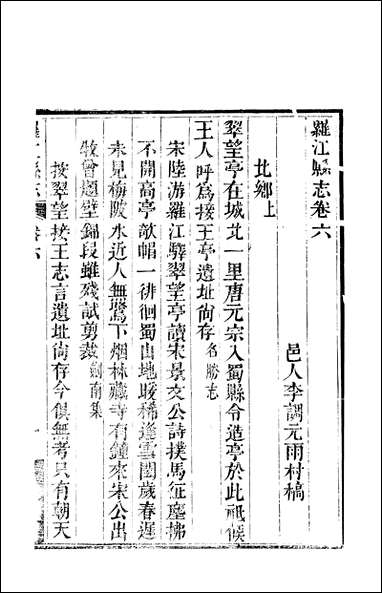 羅江縣志卷六
邑人李調元雨村稿
北鄉上
翠望亭在城北一里唐元宗入蜀縣令造亭於此祗候
王人呼為接王亭遺址尚存名勝志
宋陸游羅江驛翠望亭讀宋景文公詩撲馬征塵拂
不開高亭欹帽一徘徊蜀山地暖稀逢雪閬歲春遲
未見梅陂水近人無鷺下烟林藏寺有鐘來宋公出
牧曾題壁錦段雖殘試剪裁劍南集
按翠望接王志言遺址尚存今俱無考只有朝天